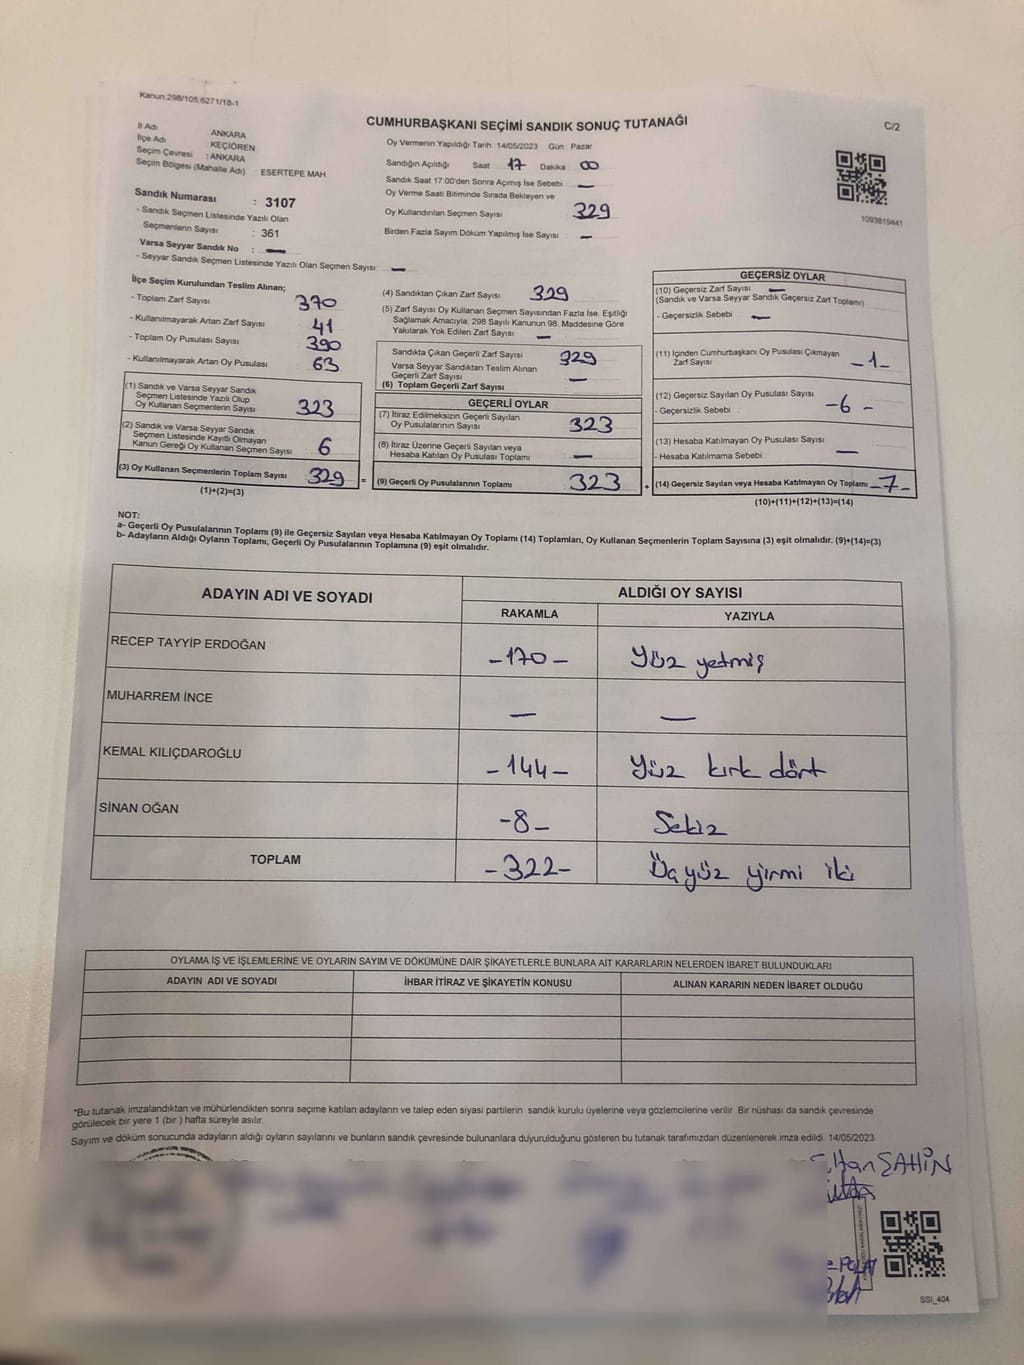 Kanun:298/105,6271/18-1
CUMHURBAŞKANI SEÇİMİ SANDIK SONUÇ TUTANAĞI
C/2
İl Adı ANKARA
İlçe Adı KEÇİÖREN
Seçim Çevresi : ANKARA
Seçim Bölgesi (Mahalle Adı) : ESERTEPE MAH
Oy Vermenin Yapıldığı Tarih 14/05/2023 Gün Pazar
Sandığın Açıldığı Saat 17 Dakika 00
Sandık Saat 17:00'den Sonra Açımış İse Sebebi —
Oy Verme Saati Bitiminde Sırada Bekleyen ve
Oy Kullandırılan Seçmen Sayısı 329
Birden Fazla Sayım Döküm Yapılmış İse Sayısı —
1093819441
Sandık Numarası : 3107
- Sandık Seçmen Listesinde Yazılı Olan
Seçmenlerin Sayısı : 361
Varsa Seyyar Sandık No : —
- Seyyar Sandık Seçmen Listesinde Yazılı Olan Seçmen Sayısı: —
İlçe Seçim Kurulundan Teslim Alınan;
- Toplam Zarf Sayısı 370
- Kullanılmayarak Artan Zarf Sayısı 41
- Toplam Oy Pusulası Sayısı 390
- Kullanılmayarak Artan Oy Pusulası 63
(1) Sandık ve Varsa Seyyar Sandık
Seçmen Listesinde Yazılı Olup
Oy Kullanan Seçmenlerin Sayısı 323
(2) Sandık ve Varsa Seyyar Sandık
Seçmen Listesinde Kayıtlı Olmayan
Kanun Gereği Oy Kullanan Seçmen Sayısı 6
(3) Oy Kullanan Seçmenlerin Toplam Sayısı 329 =
(1)+(2)=(3)
(4) Sandıktan Çıkan Zarf Sayısı 329
(5) Zarf Sayısı Oy Kullanan Seçmen Sayısından Fazla İse, Eşitliği
Sağlamak Amacıyla; 298 Sayılı Kanunun 98. Maddesine Göre
Yakılarak Yok Edilen Zarf Sayısı —
Sandıkta Çıkan Geçerli Zarf Sayısı 329
Varsa Seyyar Sandıktan Teslim Alınan
Geçerli Zarf Sayısı —
(6) Toplam Geçerli Zarf Sayısı
GEÇERLİ OYLAR
(7) İtiraz Edilmeksizin Geçerli Sayılan
Oy Pusulalarının Sayısı 323
(8) İtiraz Üzerine Geçerli Sayılan veya
Hesaba Katılan Oy Pusulası Toplamı —
(9) Geçerli Oy Pusulalarının Toplamı 323 +
GEÇERSİZ OYLAR
(10) Geçersiz Zarf Sayısı —
(Sandık ve Varsa Seyyar Sandık Geçersiz Zarf Toplamı)
- Geçersizlik Sebebi —
(11) İçinden Cumhurbaşkanı Oy Pusulası Çıkmayan
Zarf Sayısı -1-
(12) Geçersiz Sayılan Oy Pusulası Sayısı -6-
- Geçersizlik Sebebi
(13) Hesaba Katılmayan Oy Pusulası Sayısı
- Hesaba Katılmama Sebebi —
(14) Geçersiz Sayılan veya Hesaba Katılmayan Oy Toplamı -7-
(10)+(11)+(12)+(13)=(14)
NOT:
a- Geçerli Oy Pusulalarının Toplamı (9) ile Geçersiz Sayılan veya Hesaba Katılmayan Oy Toplamı (14) Toplamları, Oy Kullanan Seçmenlerin Toplam Sayısına (3) eşit olmalıdır. (9)+(14)=(3)
b- Adayların Aldığı Oyların Toplamı, Geçerli Oy Pusulalarının Toplamına (9) eşit olmalıdır.
ADAYIN ADI VE SOYADI
ALDIĞI OY SAYISI
RAKAMLA YAZIYLA
RECEP TAYYİP ERDOĞAN -170- Yüz yetmiş
MUHARREM İNCE — —
KEMAL KILIÇDAROĞLU -144- Yüz kırk dört
SİNAN OĞAN -8- Sekiz
TOPLAM -322- Üçyüz yirmi iki
OYLAMA İŞ VE İŞLEMLERİNE VE OYLARIN SAYIM VE DÖKÜMÜNE DAİR ŞİKAYETLERLE BUNLARA AİT KARARLARIN NELERDEN İBARET BULUNDUKLARI
ADAYIN ADI VE SOYADI İHBAR İTİRAZ VE ŞİKAYETİN KONUSU ALINAN KARARIN NEDEN İBARET OLDUĞU
*Bu tutanak imzalandıktan ve mühürlendikten sonra seçime katılan adayların ve talep eden siyasi partilerin sandık kurulu üyelerine veya gözlemcilerine verilir. Bir nüshası da sandık çevresinde
görülecek bir yere 1 (bir) hafta süreyle asılır.
Sayım ve döküm sonucunda adayların aldığı oyların sayılarını ve bunların sandık çevresinde bulunanlara duyurulduğunu gösteren bu tutanak tarafımızdan düzenlenerek imza edildi. 14/05/2023
ŞAHİN
POLAT
SSI_404